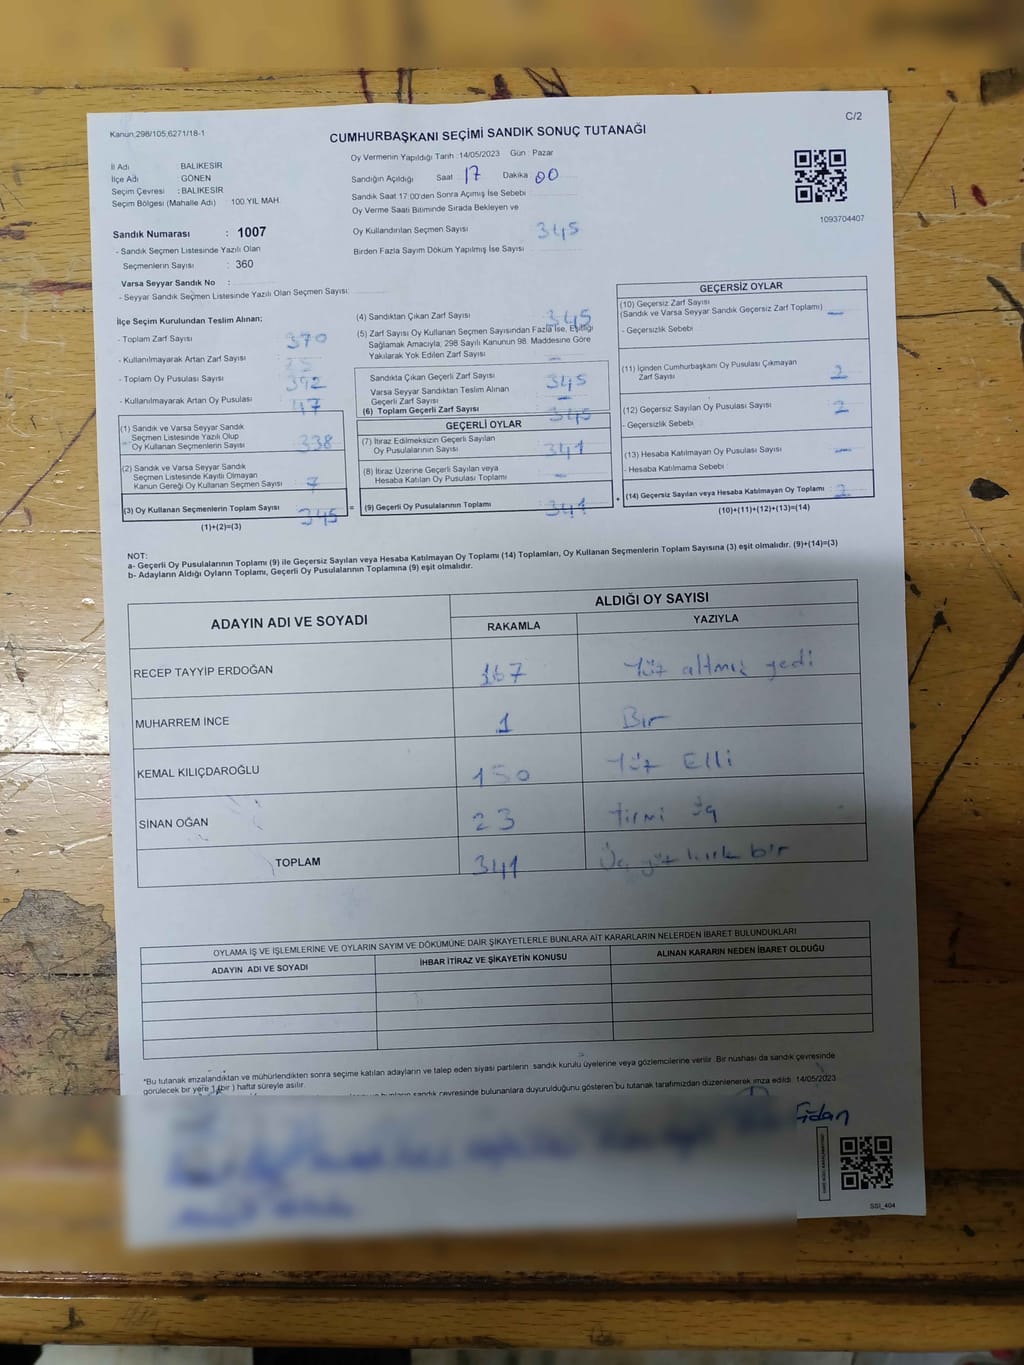 Kanun.298/105,6271/18-1
C/2
CUMHURBAŞKANI SEÇİMİ SANDIK SONUÇ TUTANAĞI
İl Adı : BALIKESİR
İlçe Adı : GÖNEN
Seçim Çevresi : BALIKESİR
Seçim Bölgesi (Mahalle Adı) : 100.YIL MAH.
Oy Vermenin Yapıldığı Tarih :14/05/2023 Gün : Pazar
Sandığın Açıldığı Saat : 17 Dakika : 00
Sandık Saat 17:00'den Sonra Açılmış İse Sebebi
Oy Verme Saati Bitiminde Sırada Bekleyen ve
Oy Kullandırılan Seçmen Sayısı : 345
Birden Fazla Sayım Döküm Yapılmış İse Sayısı :
1093704407
Sandık Numarası : 1007
- Sandık Seçmen Listesinde Yazılı Olan
Seçmenlerin Sayısı : 360
Varsa Seyyar Sandık No :
- Seyyar Sandık Seçmen Listesinde Yazılı Olan Seçmen Sayısı:
İlçe Seçim Kurulundan Teslim Alınan;
- Toplam Zarf Sayısı : 370
- Kullanılmayarak Artan Zarf Sayısı : 25
- Toplam Oy Pusulası Sayısı : 392
- Kullanılmayarak Artan Oy Pusulası : 47
(1) Sandık ve Varsa Seyyar Sandık
Seçmen Listesinde Yazılı Olup
Oy Kullanan Seçmenlerin Sayısı : 338
(2) Sandık ve Varsa Seyyar Sandık
Seçmen Listesinde Kayıtlı Olmayan
Kanun Gereği Oy Kullanan Seçmen Sayısı : 7
(3) Oy Kullanan Seçmenlerin Toplam Sayısı : 345
(1)+(2)=(3)
(4) Sandıktan Çıkan Zarf Sayısı : 345
(5) Zarf Sayısı Oy Kullanan Seçmen Sayısından Fazla İse, Eşitliği
Sağlamak Amacıyla, 298 Sayılı Kanunun 98. Maddesine Göre
Yakılarak Yok Edilen Zarf Sayısı : —
Sandıkta Çıkan Geçerli Zarf Sayısı : 345
Varsa Seyyar Sandıktan Teslim Alınan
Geçerli Zarf Sayısı : —
(6) Toplam Geçerli Zarf Sayısı : 345
GEÇERLİ OYLAR
(7) İtiraz Edilmeksizin Geçerli Sayılan
Oy Pusulalarının Sayısı : 341
(8) İtiraz Üzerine Geçerli Sayılan veya
Hesaba Katılan Oy Pusulası Toplamı : —
= (9) Geçerli Oy Pusulalarının Toplamı : 341
GEÇERSİZ OYLAR
(10) Geçersiz Zarf Sayısı
(Sandık ve Varsa Seyyar Sandık Geçersiz Zarf Toplamı) : —
- Geçersizlik Sebebi
(11) İçinden Cumhurbaşkanı Oy Pusulası Çıkmayan
Zarf Sayısı : 2
(12) Geçersiz Sayılan Oy Pusulası Sayısı : 2
- Geçersizlik Sebebi
(13) Hesaba Katılmayan Oy Pusulası Sayısı : —
- Hesaba Katılmama Sebebi
+ (14) Geçersiz Sayılan veya Hesaba Katılmayan Oy Toplamı :
(10)+(11)+(12)+(13)=(14)
NOT:
a- Geçerli Oy Pusulalarının Toplamı (9) ile Geçersiz Sayılan veya Hesaba Katılmayan Oy Toplamı (14) Toplamları, Oy Kullanan Seçmenlerin Toplam Sayısına (3) eşit olmalıdır. (9)+(14)=(3)
b- Adayların Aldığı Oyların Toplamı, Geçerli Oy Pusulalarının Toplamına (9) eşit olmalıdır.
ADAYIN ADI VE SOYADI ALDIĞI OY SAYISI
RAKAMLA YAZIYLA
RECEP TAYYİP ERDOĞAN 167 Yüz altmış yedi
MUHARREM İNCE 1 Bir
KEMAL KILIÇDAROĞLU 150 Yüz Elli
SİNAN OĞAN 23 Yirmi üç
TOPLAM 341 Üç yüz kırk bir
OYLAMA İŞ VE İŞLEMLERİNE VE OYLARIN SAYIM VE DÖKÜMÜNE DAİR ŞİKAYETLERLE BUNLARA AİT KARARLARIN NELERDEN İBARET BULUNDUKLARI
ADAYIN ADI VE SOYADI İHBAR İTİRAZ VE ŞİKAYETİN KONUSU ALINAN KARARIN NEDEN İBARET OLDUĞU
*Bu tutanak imzalandıktan ve mühürlendikten sonra seçime katılan adayların ve talep eden siyasi partilerin sandık kurulu üyelerine veya gözlemcilerine verilir. Bir nüshası da sandık çevresinde
görülecek bir yere 1 (bir ) hafta süreyle asılır.
sandık çevresinde bulunanlara duyurulduğunu gösteren bu tutanak tarafımızdan düzenlenerek imza edildi. 14/05/2023
Fidan
SSİ_404